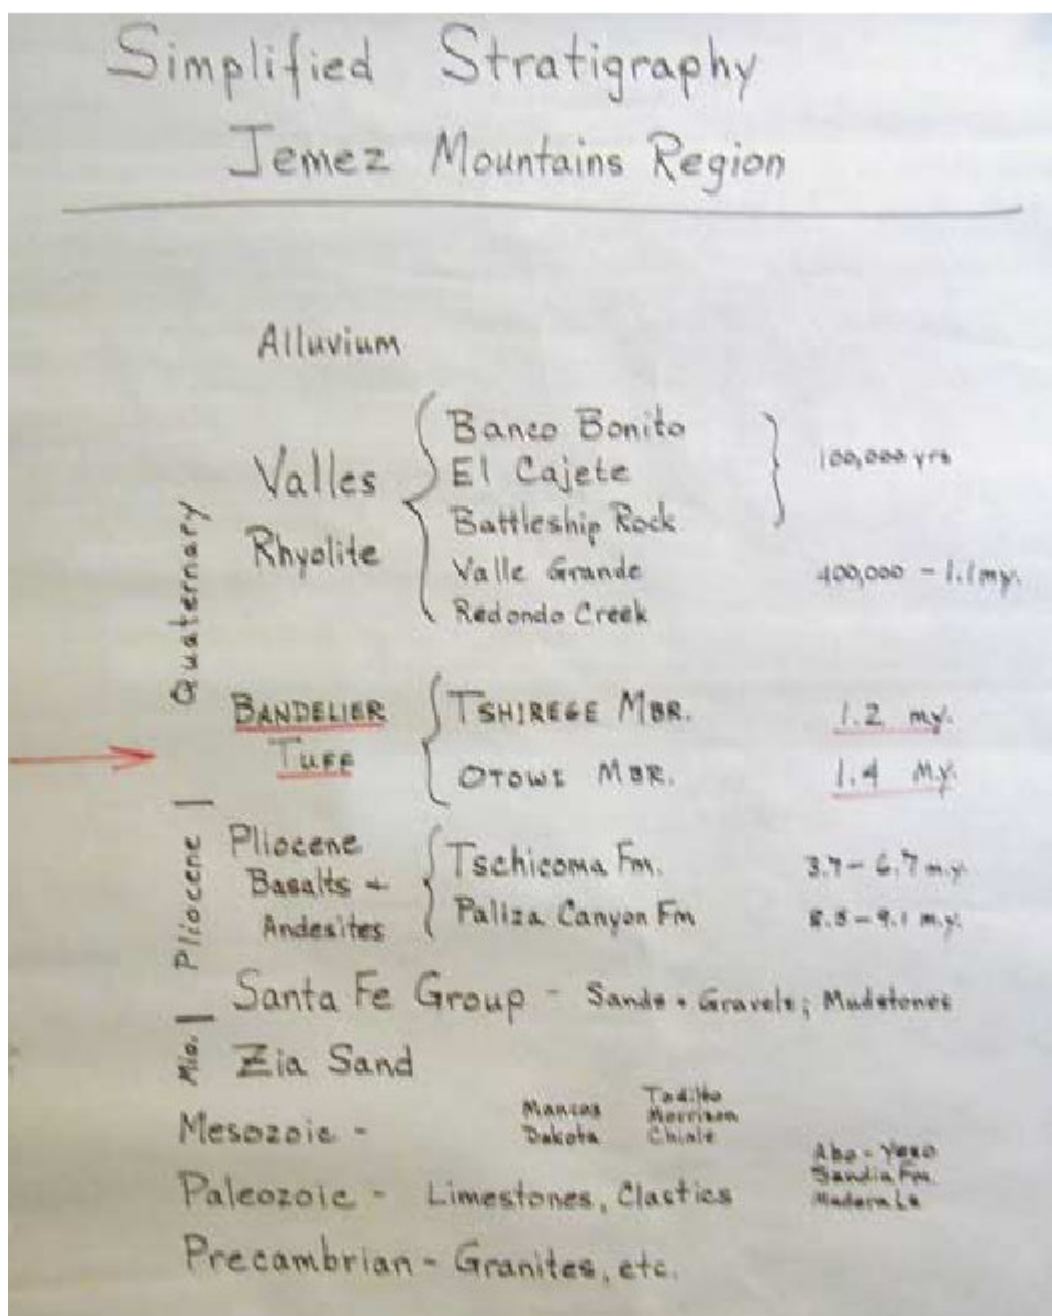 Simplified Stratigraphy
Jemez Mountains Region
Alluvium
Valles
Rhyolite
Banco Bonito
El Cajete
Battleship Rock
100,000 yrs
Valle Grande
Redondo Creek
400,000 - 1.1 my.
Quaternary
BANDELIER
TUFF
TSHIREGE MBR. 1.2 my.
OTOWI MBR. 1.4 M.y.
Pliocene
Pliocene
Basalts +
Andesites
Tschicoma Fm. 3.7 - 6.7 m.y.
Paliza Canyon Fm 8.5 - 9.1 m.y.
Santa Fe Group - Sands + Gravels; Mudstones
Mio.
Zia Sand
Mesozoic -
Mancos
Dakota
Todilto
Morrison
Chinle
Paleozoic - Limestones, Clastics
Abo - Yeso
Sandia Fm.
Madera Ls
Precambrian - Granites, etc.